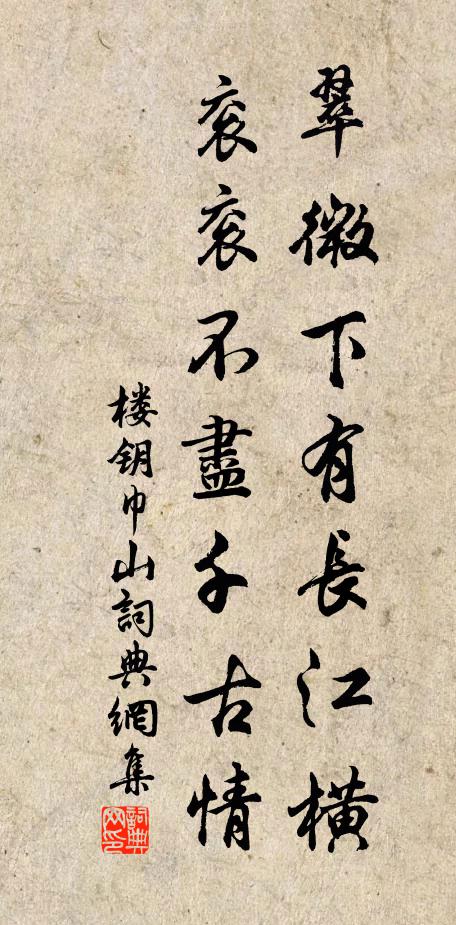 翠微下有長江橫
衮衮不盡千古情
楼钥巾山詞典網集
詞典網印